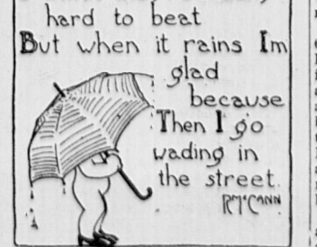 hard to beat
But when it rains Im
glad
because
Then I go
wading in
the street.
R. McCANN